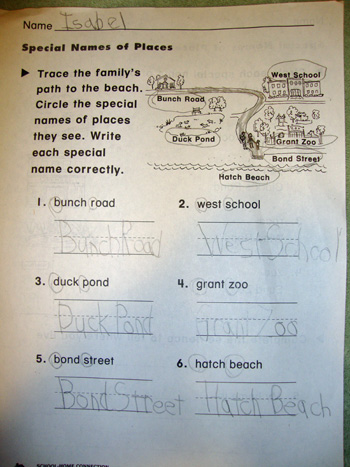 Name Isabel
Special Names of Places
▶ Trace the family's
path to the beach.
Circle the special
names of places
they see. Write
each special
name correctly.
West School
Bunch Road
Duck Pond
Grant Zoo
Bond Street
Hatch Beach
1. bunch road
2. west school
Bunch Road
West School
3. duck pond
4. grant zoo
Duck Pond
grant Zoo
5. bond street
6. hatch beach
Bond Street
Hatch Beach
SCHOOL-HOME CONNECTION